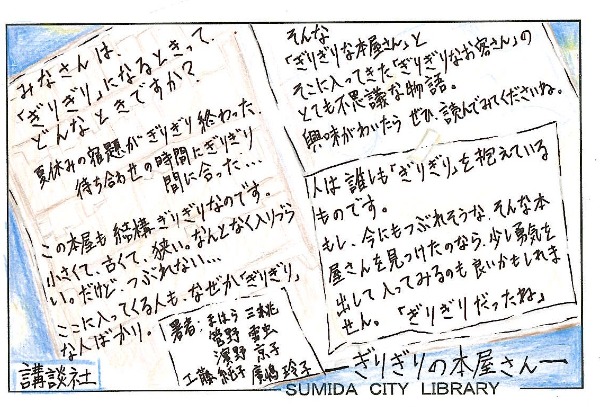 みなさんは、
「ぎりぎり」になるときって、
どんなときですか？
夏休みの宿題がぎりぎり終わった、
待ち合わせの時間にぎりぎり
間に合った…
この本屋も結構ぎりぎりなのです。
小さくて、古くて、狭い。なんとなく入りづら
い。だけど、つぶれない…
ここに入ってくる人も、なぜか「ぎりぎり」
な人ばかり。
著者：まはら 三桃
菅野 雪虫
濱野 京子
工藤 純子 廣嶋 玲子
講談社
そんな
「ぎりぎりな本屋さん」と
そこに入ってきた「ぎりぎりなお客さん」の
とても不思議な物語。
興味がわいたら ぜひ、読んでみてくださいね。
人は誰しも「ぎりぎり」を抱えている
ものです。
もし、今にもつぶれそうな、そんな本
屋さんを見つけたのなら、少し勇気を
出して入ってみるのも良いかもしれま
せん。「ぎりぎりだったね」
ぎりぎりの本屋さん
SUMIDA CITY LIBRARY